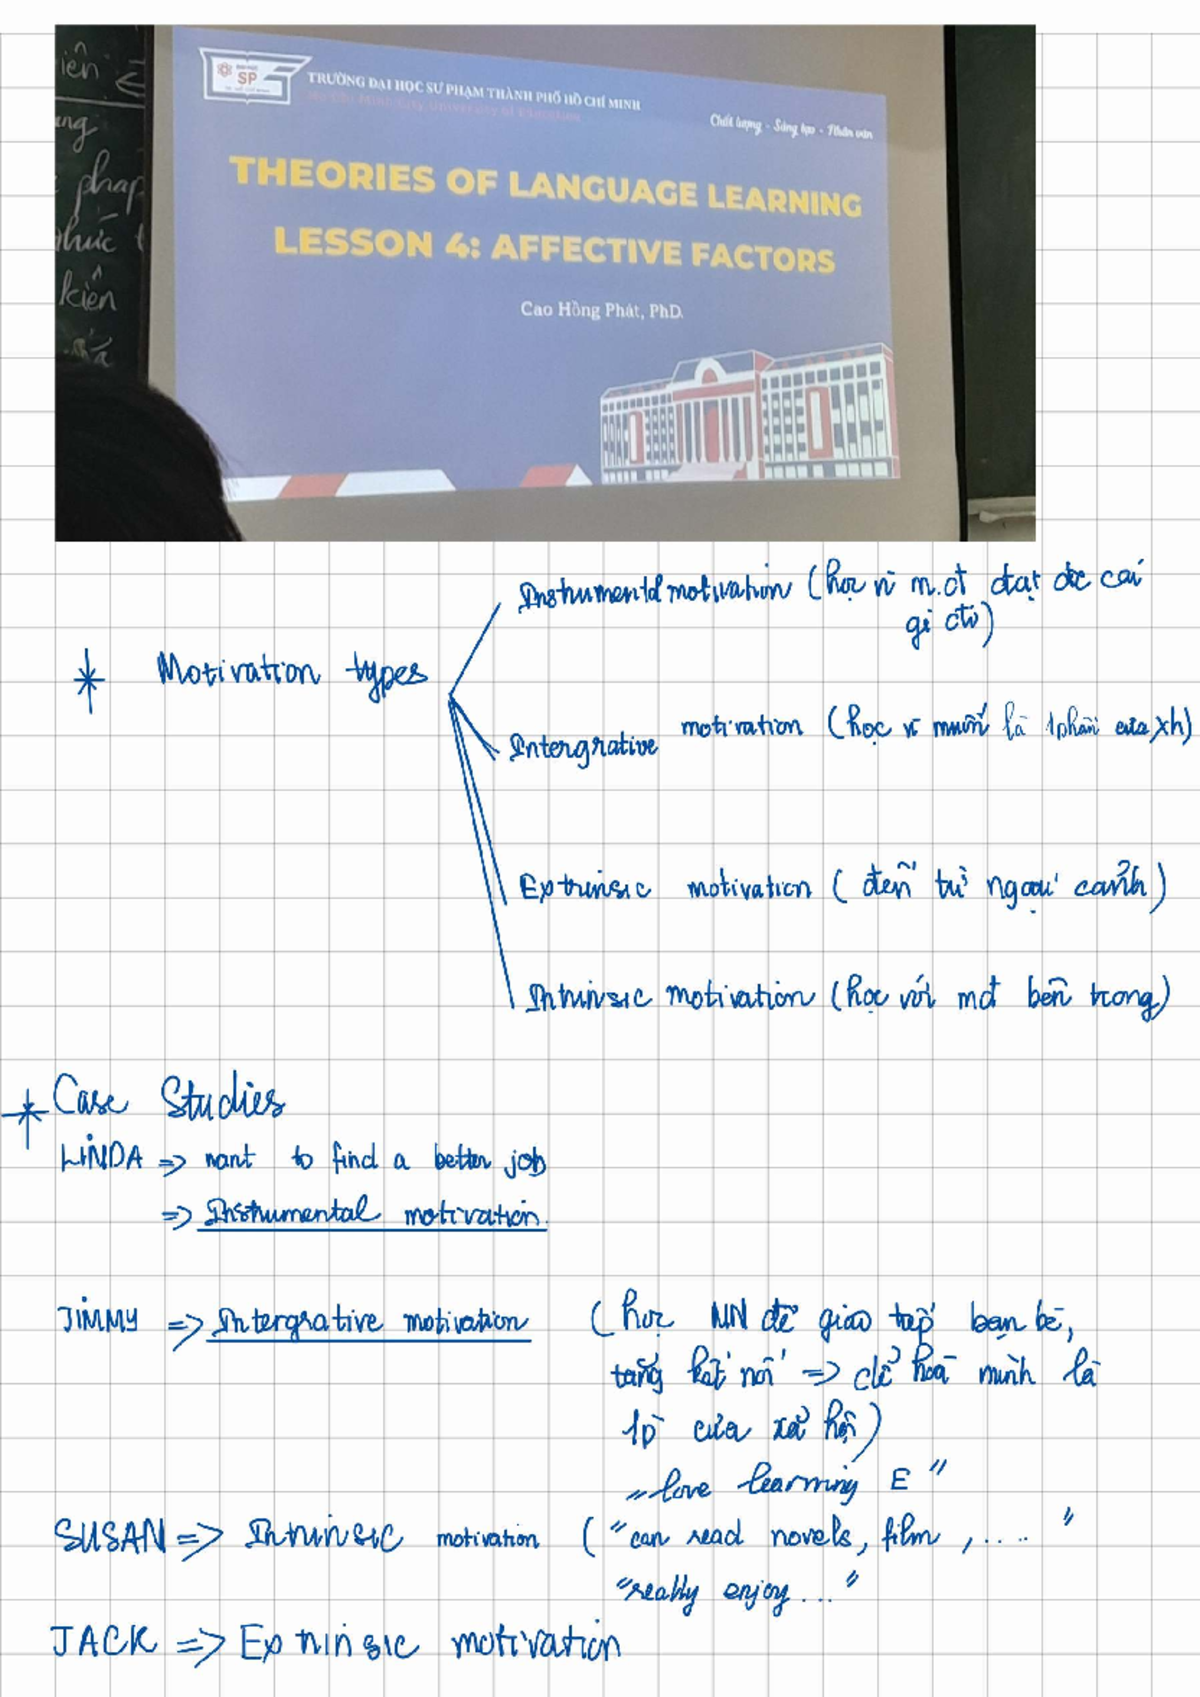 iên
ang
pháp
thức t
kiên
SP
TRƯỜNG ĐẠI HỌC SƯ PHẠM THÀNH PHỐ HỒ CHÍ MINH
Ho Chi Minh City University of Education
Chất lượng - Sáng tạo - Nhân văn
THEORIES OF LANGUAGE LEARNING
LESSON 4: AFFECTIVE FACTORS
Cao Hồng Phát, PhD.
Instrumental motivation (học vì m.đ đạt đc cái
gì đó)
* Motivation types
Intergrative motivation (học vì muốn là 1 phần của xh)
Extrinsic motivation (đến từ ngoại cảnh)
Intrinsic motivation (học với mđ bên trong)
* Case Studies
LINDA => want to find a better job
=> Instrumental motivation.
JIMMY => Intergrative motivation (học NN để giao tiếp bạn bè,
tăng kết nối => để hoà mình là
1p của xã hội)
"love learning E"
SUSAN => Intrinsic motivation ("can read novels, film, .... "
"really enjoy..."
JACK => Extrinsic motivation